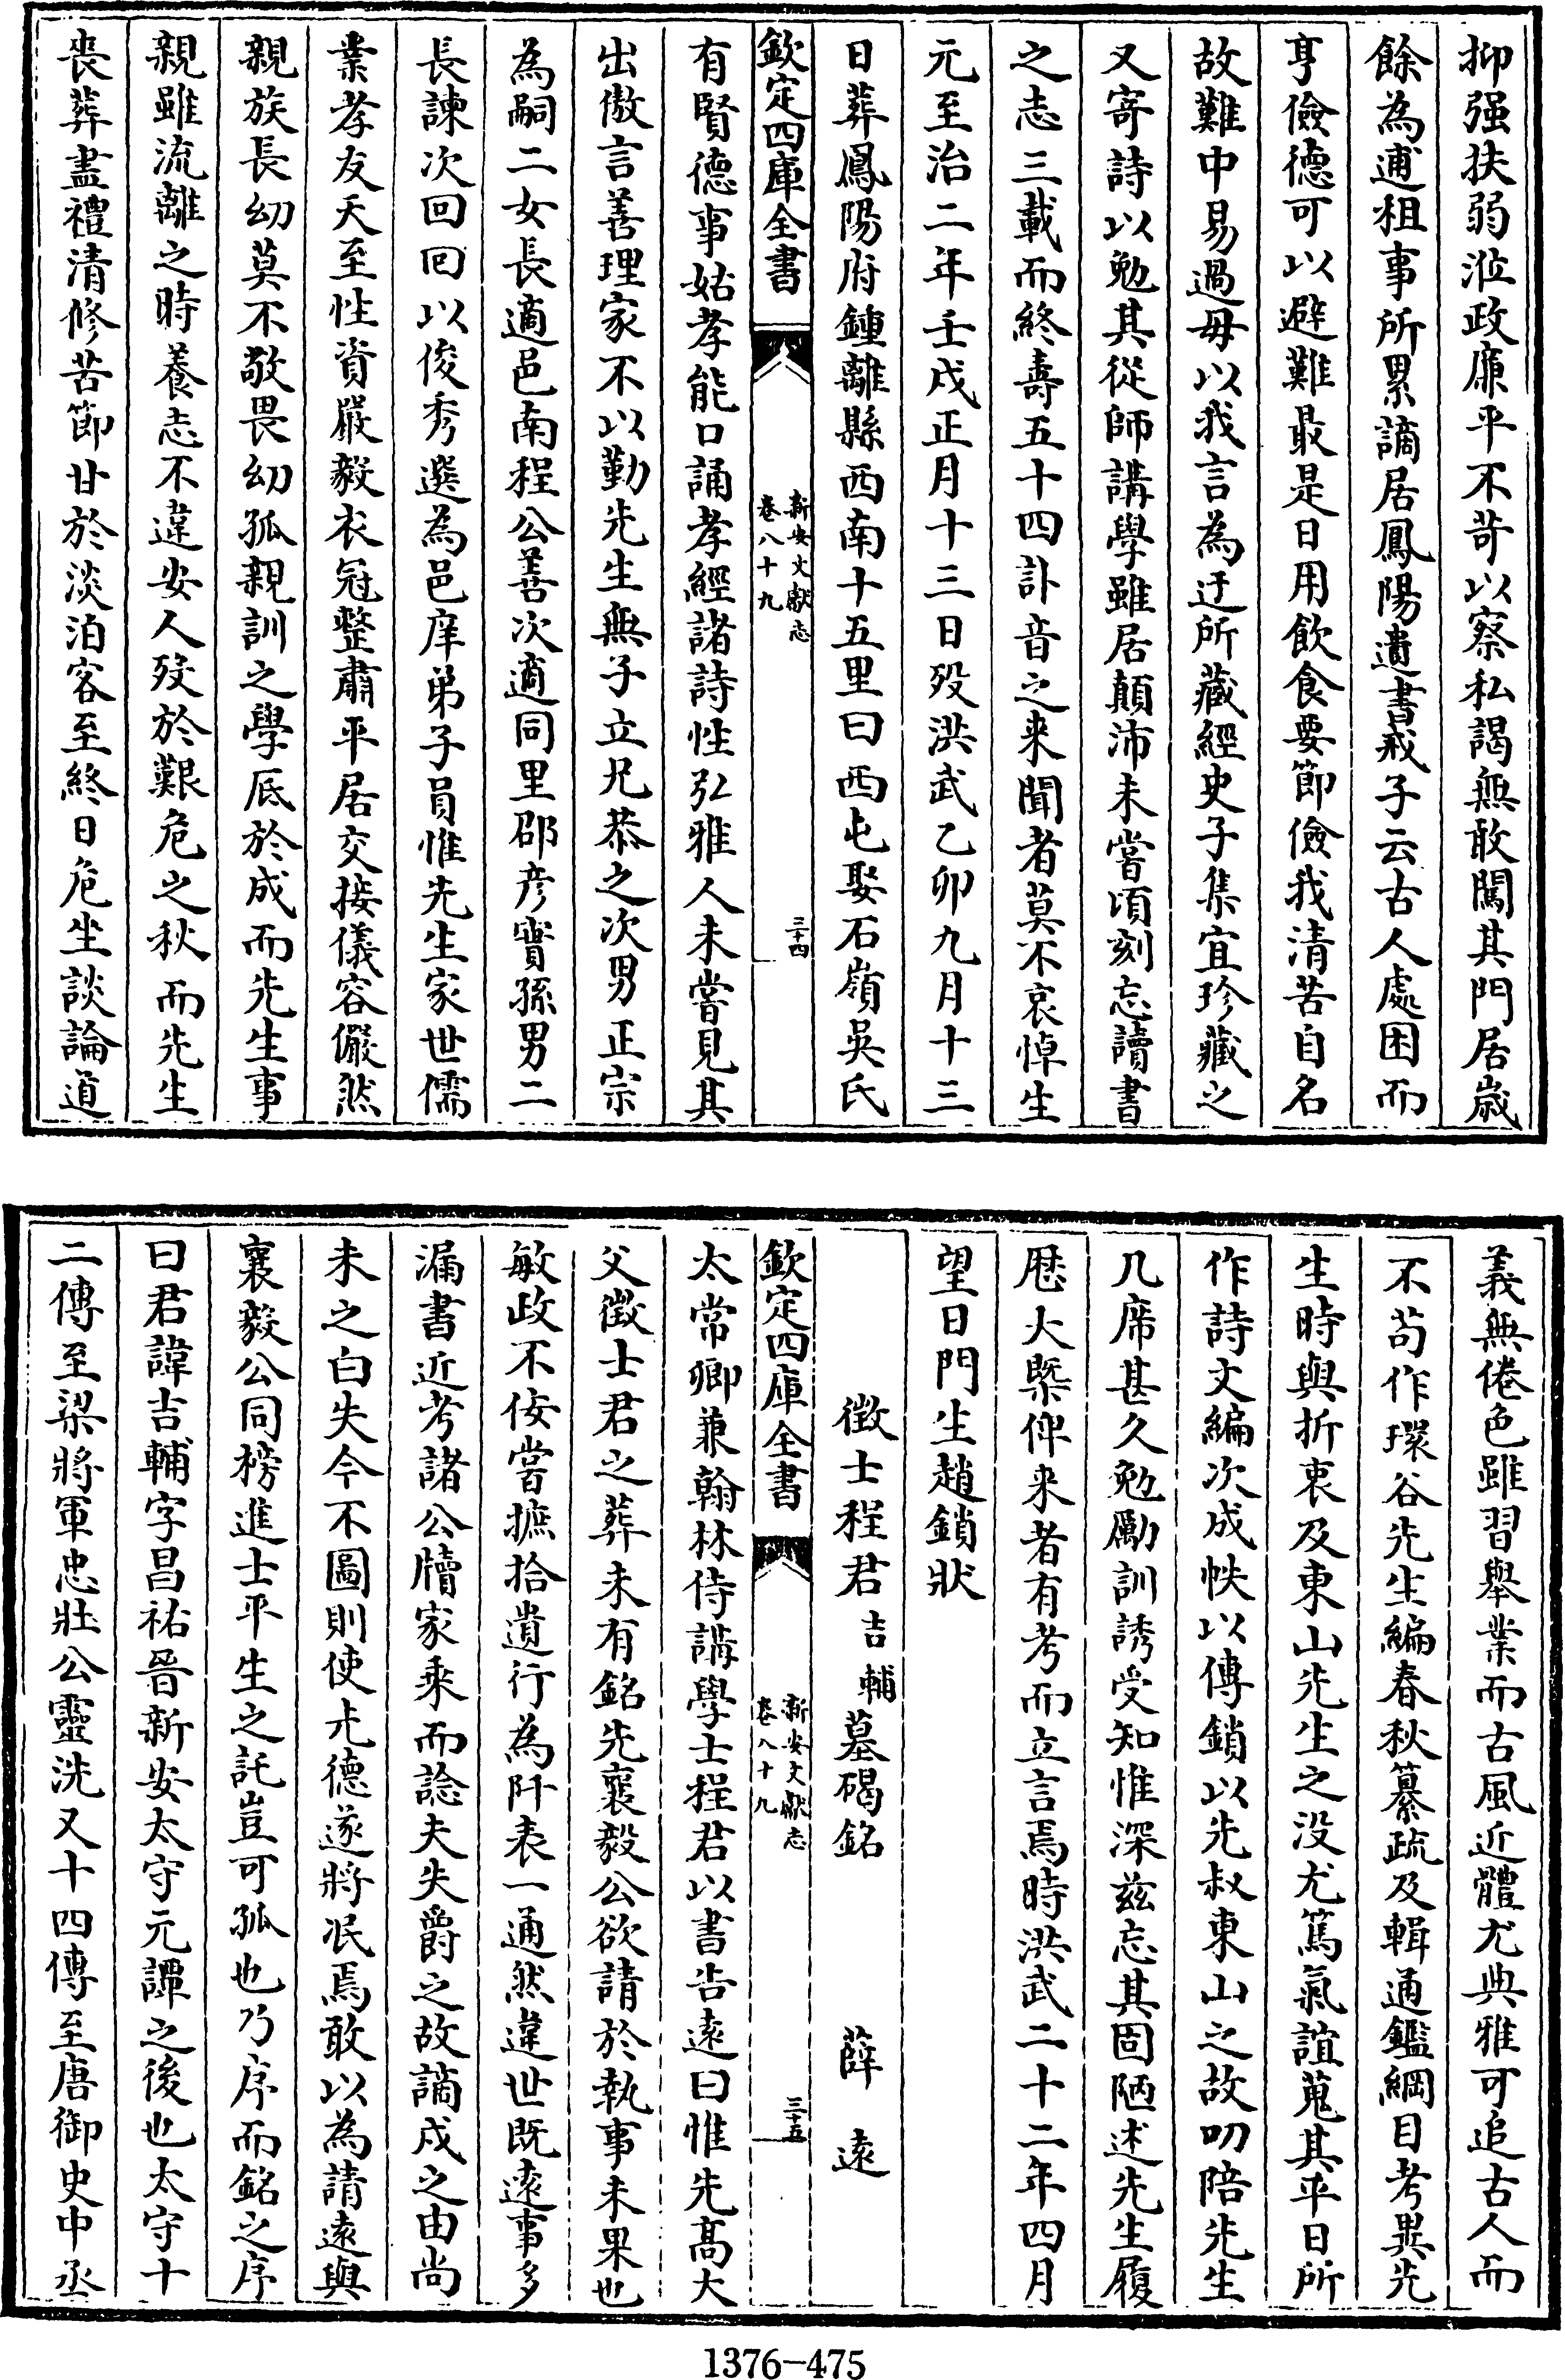 抑强扶弱涖政廉平不苛以察私謁無敢闖其門居歳
餘為逋租事所累謫居鳳陽遺書戒子云古人處困而
亨儉德可以避難最是日用飲食要節儉我清苦自名
故難中易過毋以我言為迂所藏經史子集宜珍藏之
又寄詩以勉其從師講學雖居顛沛未嘗頃刻忘讀書
之志三載而終壽五十四訃音之来聞者莫不哀悼生
元至治二年壬戌正月十三日歿洪武乙卯九月十三
日葬鳳陽府鍾離縣西南十五里曰西屯娶石嶺吳氏
欽定四庫全書 新安文獻志 卷八十九 三十四
有賢德事姑孝能口誦孝經諸詩性弘雅人未嘗見其
出傲言善理家不以勤先生無子立兄恭之次男正宗
為嗣二女長適邑南程公善次適同里邵彦實孫男二
長諫次回回以俊秀選為邑庠弟子員惟先生家世儒
業孝友天至性資嚴毅衣冠整肅平居交接儀容儼然
親族長幼莫不敬畏幼孤親訓之學底於成而先生事
親雖流離之時養志不違安人歿於艱危之秋而先生
喪葬盡禮清修苦節甘於淡泊客至終日危坐談論道
義無倦色雖習舉業而古風近體尤典雅可追古人而
不苟作環谷先生編春秋纂疏及輯通鑑綱目考異先
生時與折衷及東山先生之没尤篤氣誼蒐其平日所
作詩文編次成帙以傳鎖以先叔東山之故叨陪先生
几席甚久勉勵訓誘受知惟深兹忘其固陋述先生履
歴大槩俾来者有考而立言焉時洪武二十二年四月
望日門生趙鎖狀
徴士程君吉輔墓碣銘 薛遠
欽定四庫全書 新安文獻志 卷八十九 三十五
太常卿兼翰林侍講學士程君以書告遠曰惟先髙大
父徴士君之葬未有銘先襄毅公欲請於執事未果也
敏政不佞嘗摭拾遺行為阡表一通然違世既遠事多
漏書近考諸公牘家乘而諗夫失爵之故謫戍之由尚
未之白失今不圖則使先德遂將泯焉敢以為請遠與
襄毅公同榜進士平生之託豈可孤也乃序而銘之序
曰君諱吉輔字昌祐晉新安太守元譚之後也太守十
二傳至梁將軍忠壯公靈洗又十四傳至唐御史中丞
1376-475